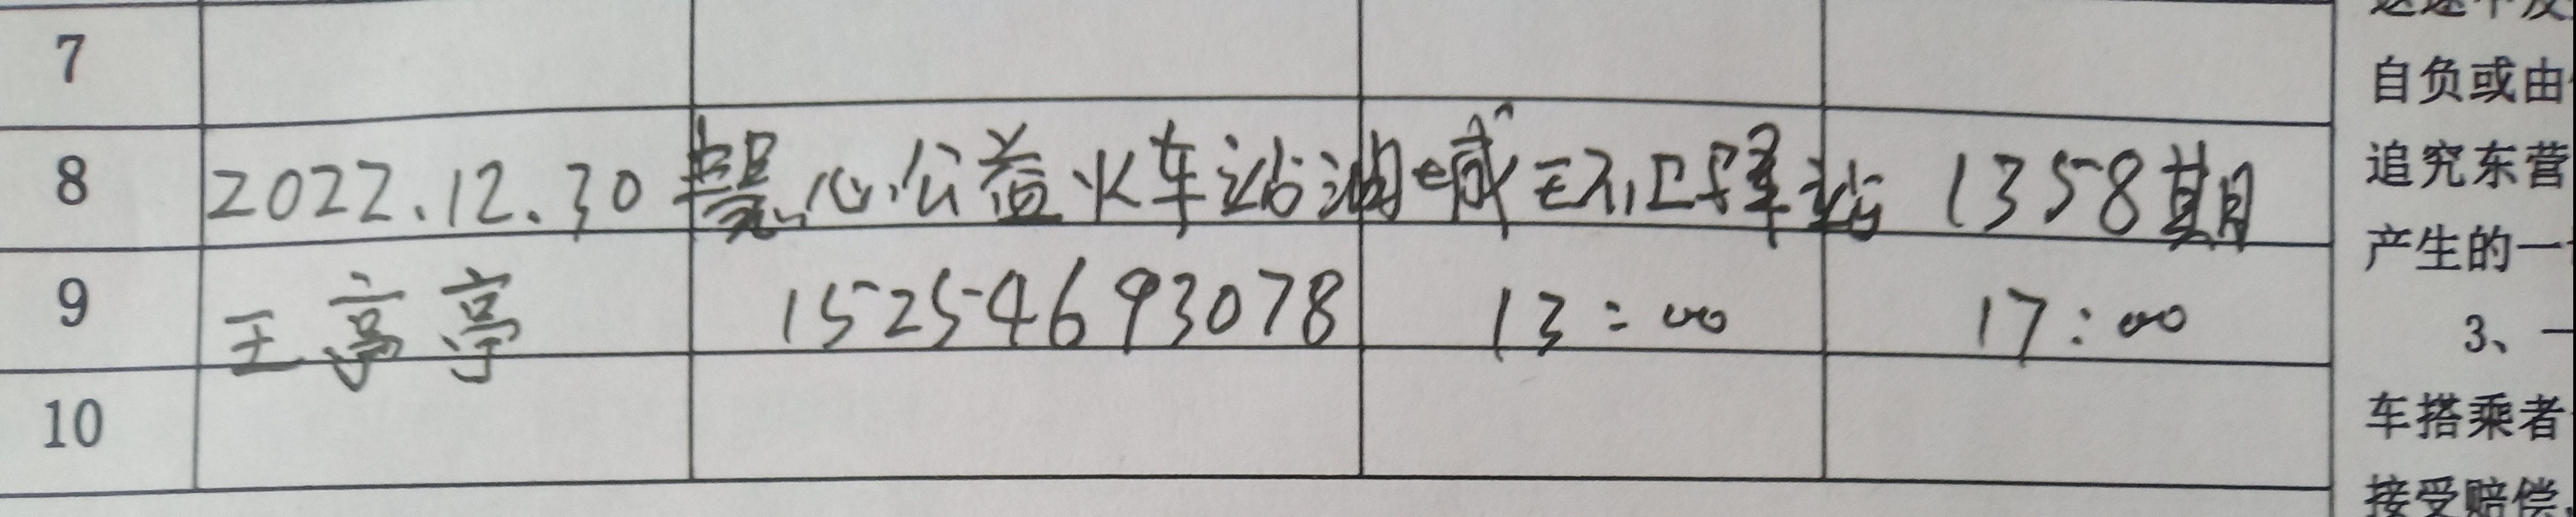 7
8 2022.12.30 慧心公益火车站油城环卫驿站 1358期
9 王亭亭 15254693078 13:00 17:00
10
自负或由
追究东营
产生的一
3、一
车搭乘者
接受赔偿